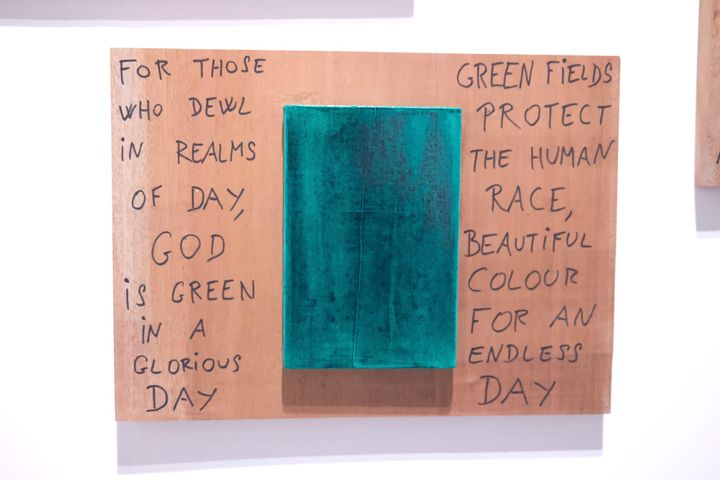 FOR THOSE
WHO DEWL
iN REALMS
OF DAY,
GOD
iS GREEN
iN A
GLORiOUS
DAY
GREEN FiELDS
PROTECT
THE HUMAN
RACE,
BEAUTiFUL
COLOUR
FOR AN
ENDLESS
DAY